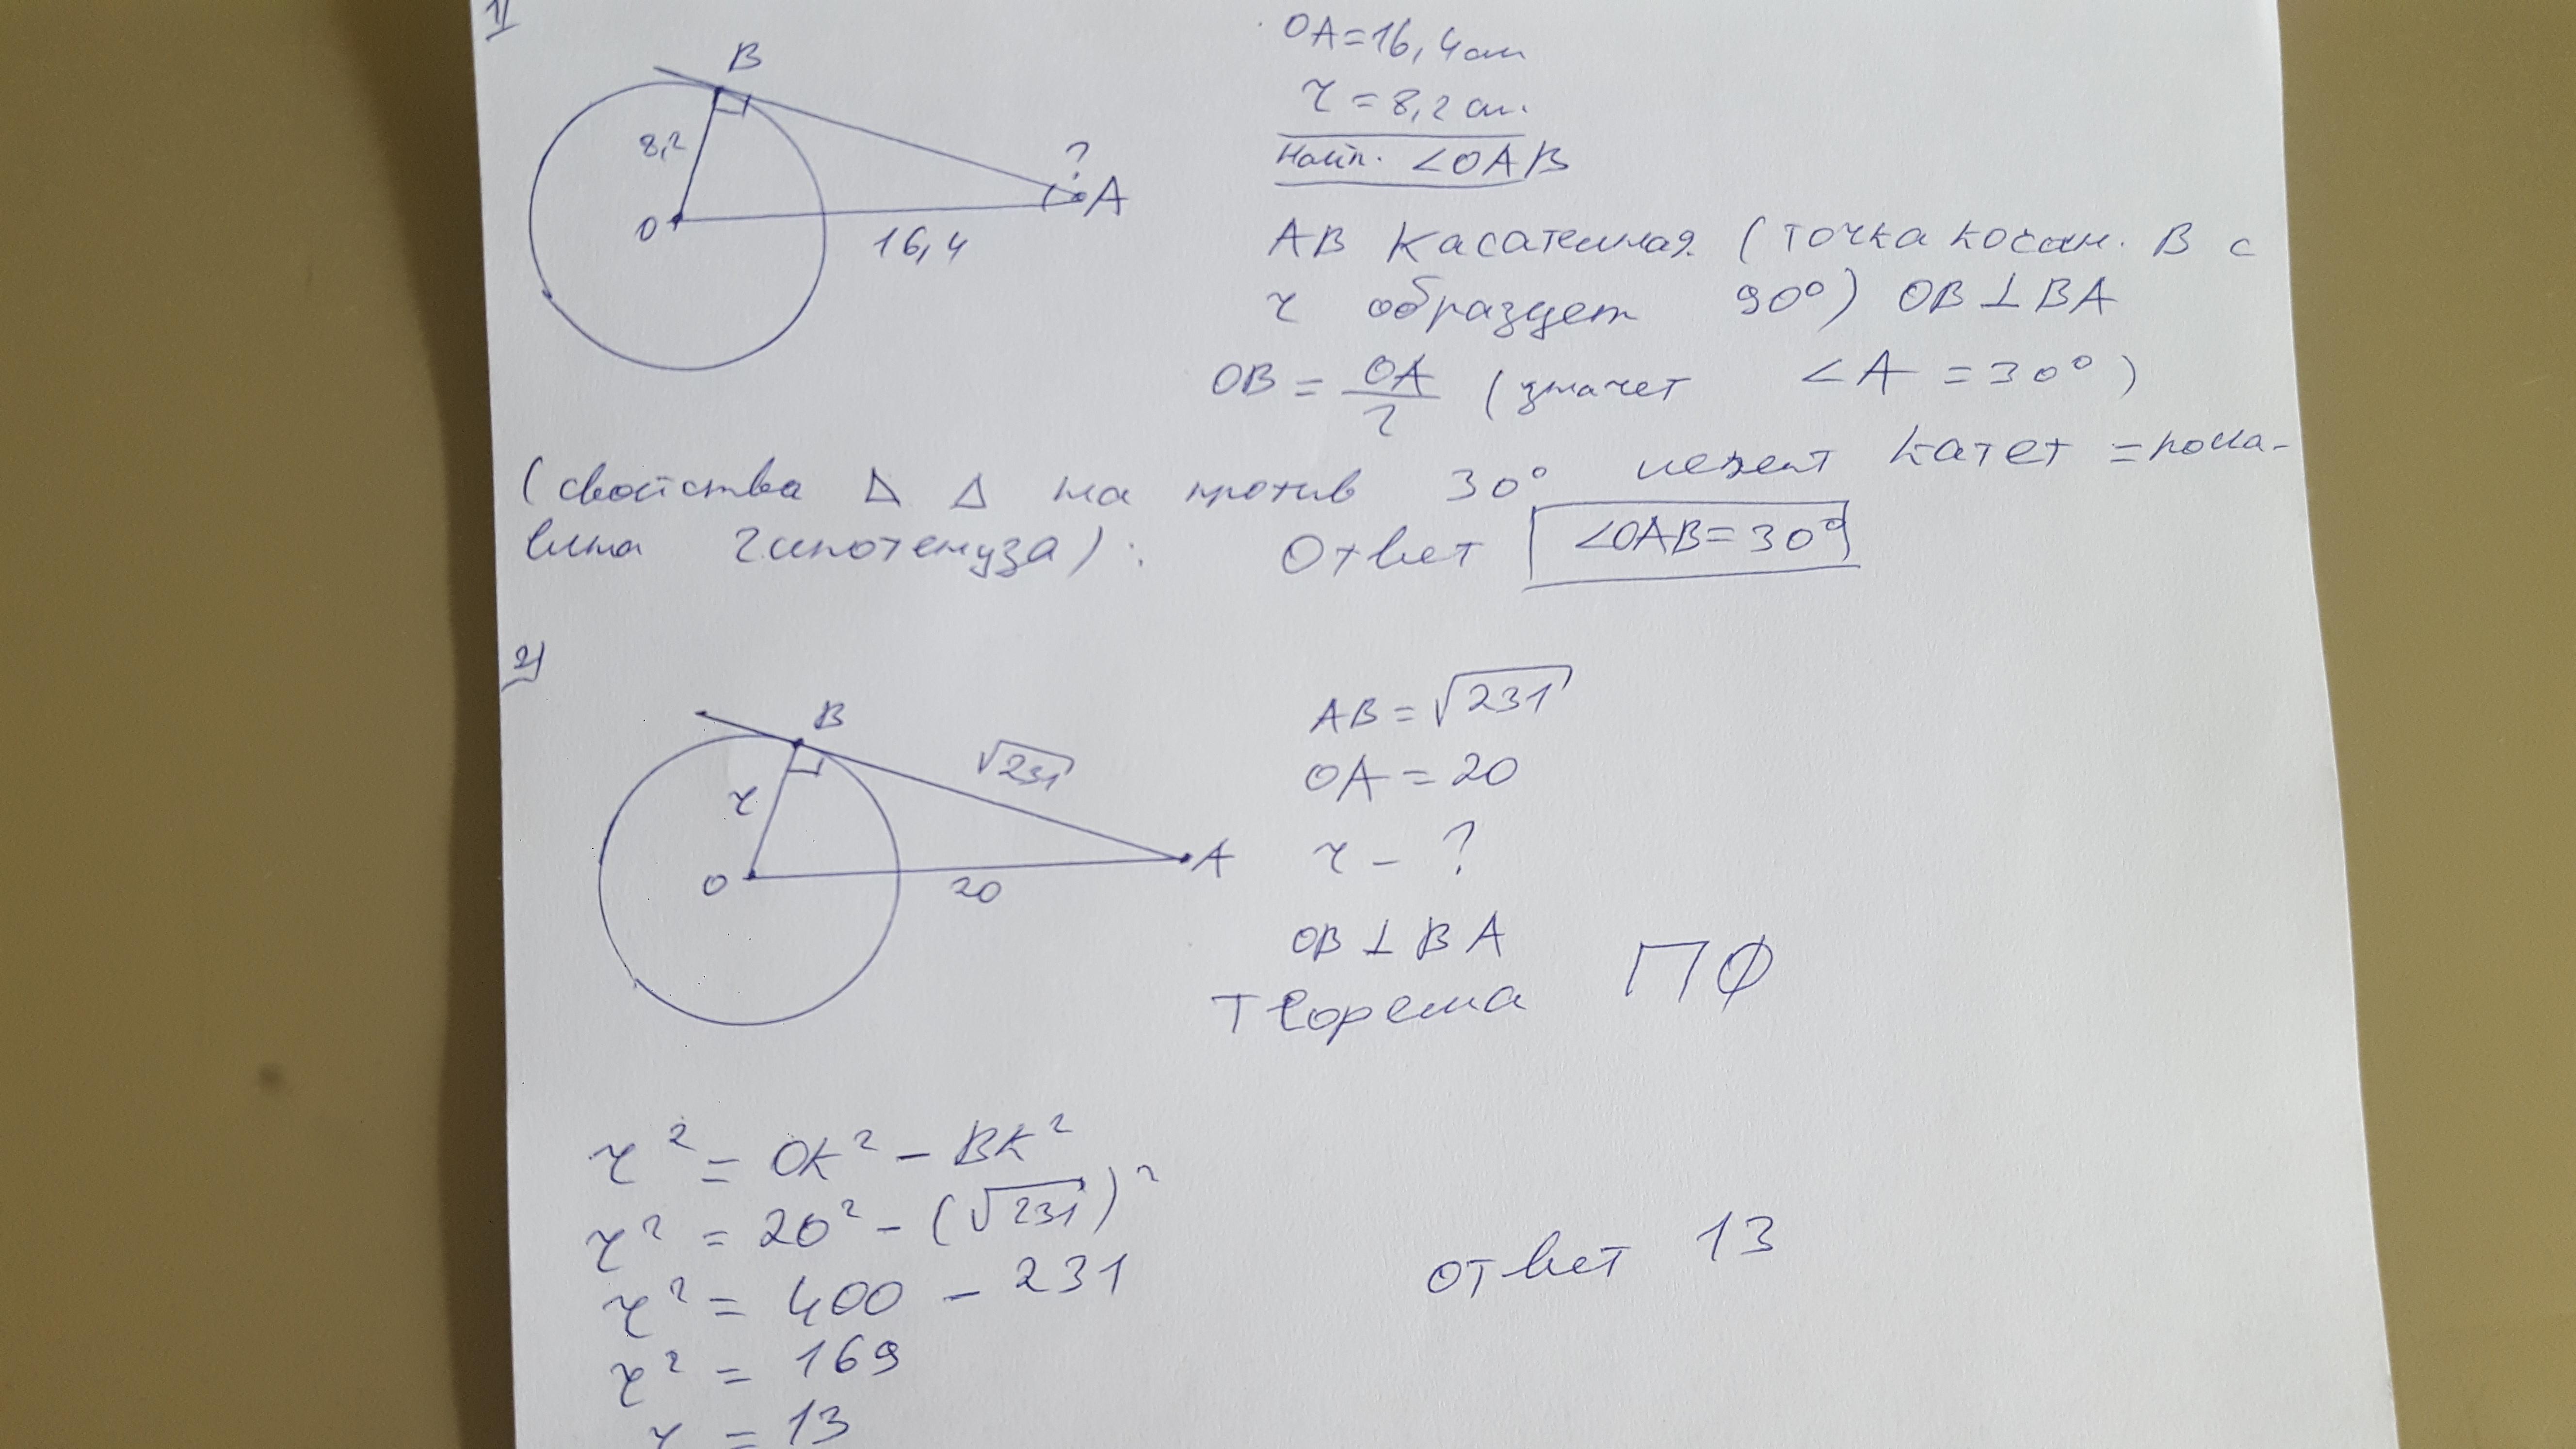 1)
B
8,2
O
16,4
?
A
OA=16,4см
r=8,2см.
Найт. <OAB
AB касательная (точка косан. B с
r образует 90°) OB⊥BA
OB = OA/2 (значет <A=30°)
(свойства ⊿ Δ на против 30° лежит катет = пола-
вина гипотенуза).
Ответ <OAB=30°
2)
B
√231
r
O
20
A
AB=√231
OA=20
r-?
OB⊥BA
Теорема ПФ
r²=OK²-BK²
r²=20²-(√231)²
r²=400-231
r²=169
r=13
ответ 13